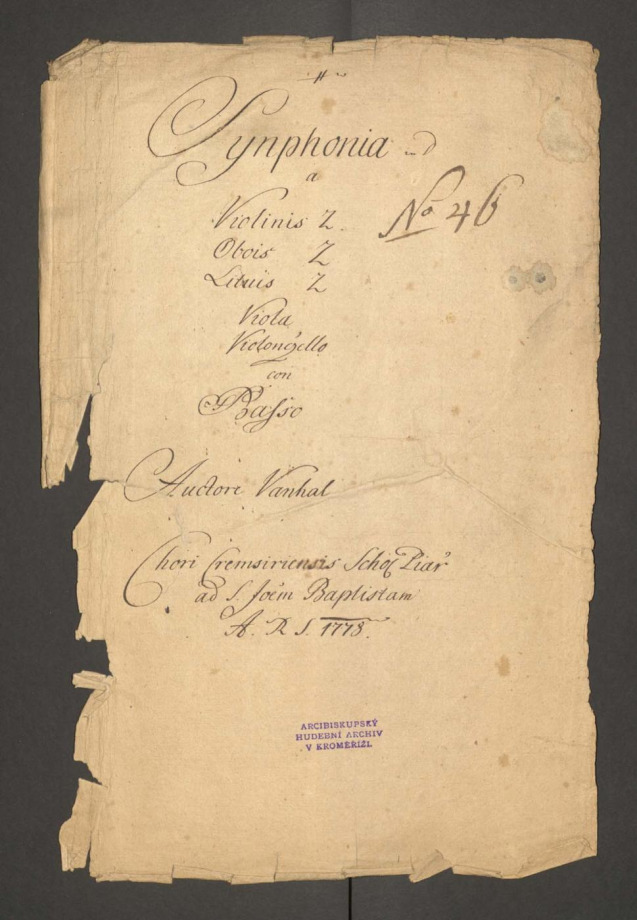 Synphonia
a
Violinis 2
No 46
Obois 2
Lituis 2
Viola
Violoncello
con
Basso
Auctore Vanhal
Chori Cremsiriensis Schol Piar
ad S. Joem Baptistam
A. R. S. 1778.
ARCIBISKUPSKÝ
HUDEBNÍ ARCHIV
V KROMĚŘÍŽI.